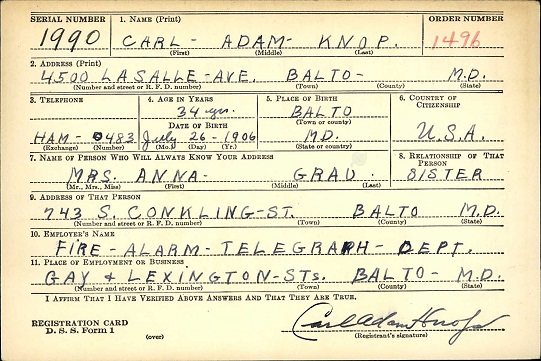 SERIAL NUMBER 1. NAME (Print) ORDER NUMBER
1990 CARL - ADAM - KNOP. 1496
(First) (Middle) (Last)
2. ADDRESS (Print)
4500 LASALLE - AVE. BALTO - M.D.
(Number and street or R. F. D. number) (Town) (County) (State)
3. TELEPHONE 4. AGE IN YEARS 5. PLACE OF BIRTH 6. COUNTRY OF CITIZENSHIP
34 yrs. BALTO
DATE OF BIRTH (Town or county)
HAM - 0483 July 26 - 1906 M.D. U.S.A.
(Exchange) (Number) (Mo.) (Day) (Yr.) (State or country)
7. NAME OF PERSON WHO WILL ALWAYS KNOW YOUR ADDRESS 8. RELATIONSHIP OF THAT PERSON
MRS. ANNA - GRAU. SISTER
(Mr., Mrs., Miss) (First) (Middle) (Last)
9. ADDRESS OF THAT PERSON
743 S. CONKLING - ST. BALTO M.D.
(Number and street or R. F. D. number) (Town) (County) (State)
10. EMPLOYER'S NAME
FIRE - ALARM - TELEGRAPH - DEPT.
11. PLACE OF EMPLOYMENT OR BUSINESS
GAY & LEXINGTON - STS. BALTO - M.D.
(Number and street or R. F. D. number) (Town) (County) (State)
I AFFIRM THAT I HAVE VERIFIED ABOVE ANSWERS AND THAT THEY ARE TRUE.
REGISTRATION CARD
D. S. S. Form 1 (over)
Carl Adam Knop
(Registrant's signature)